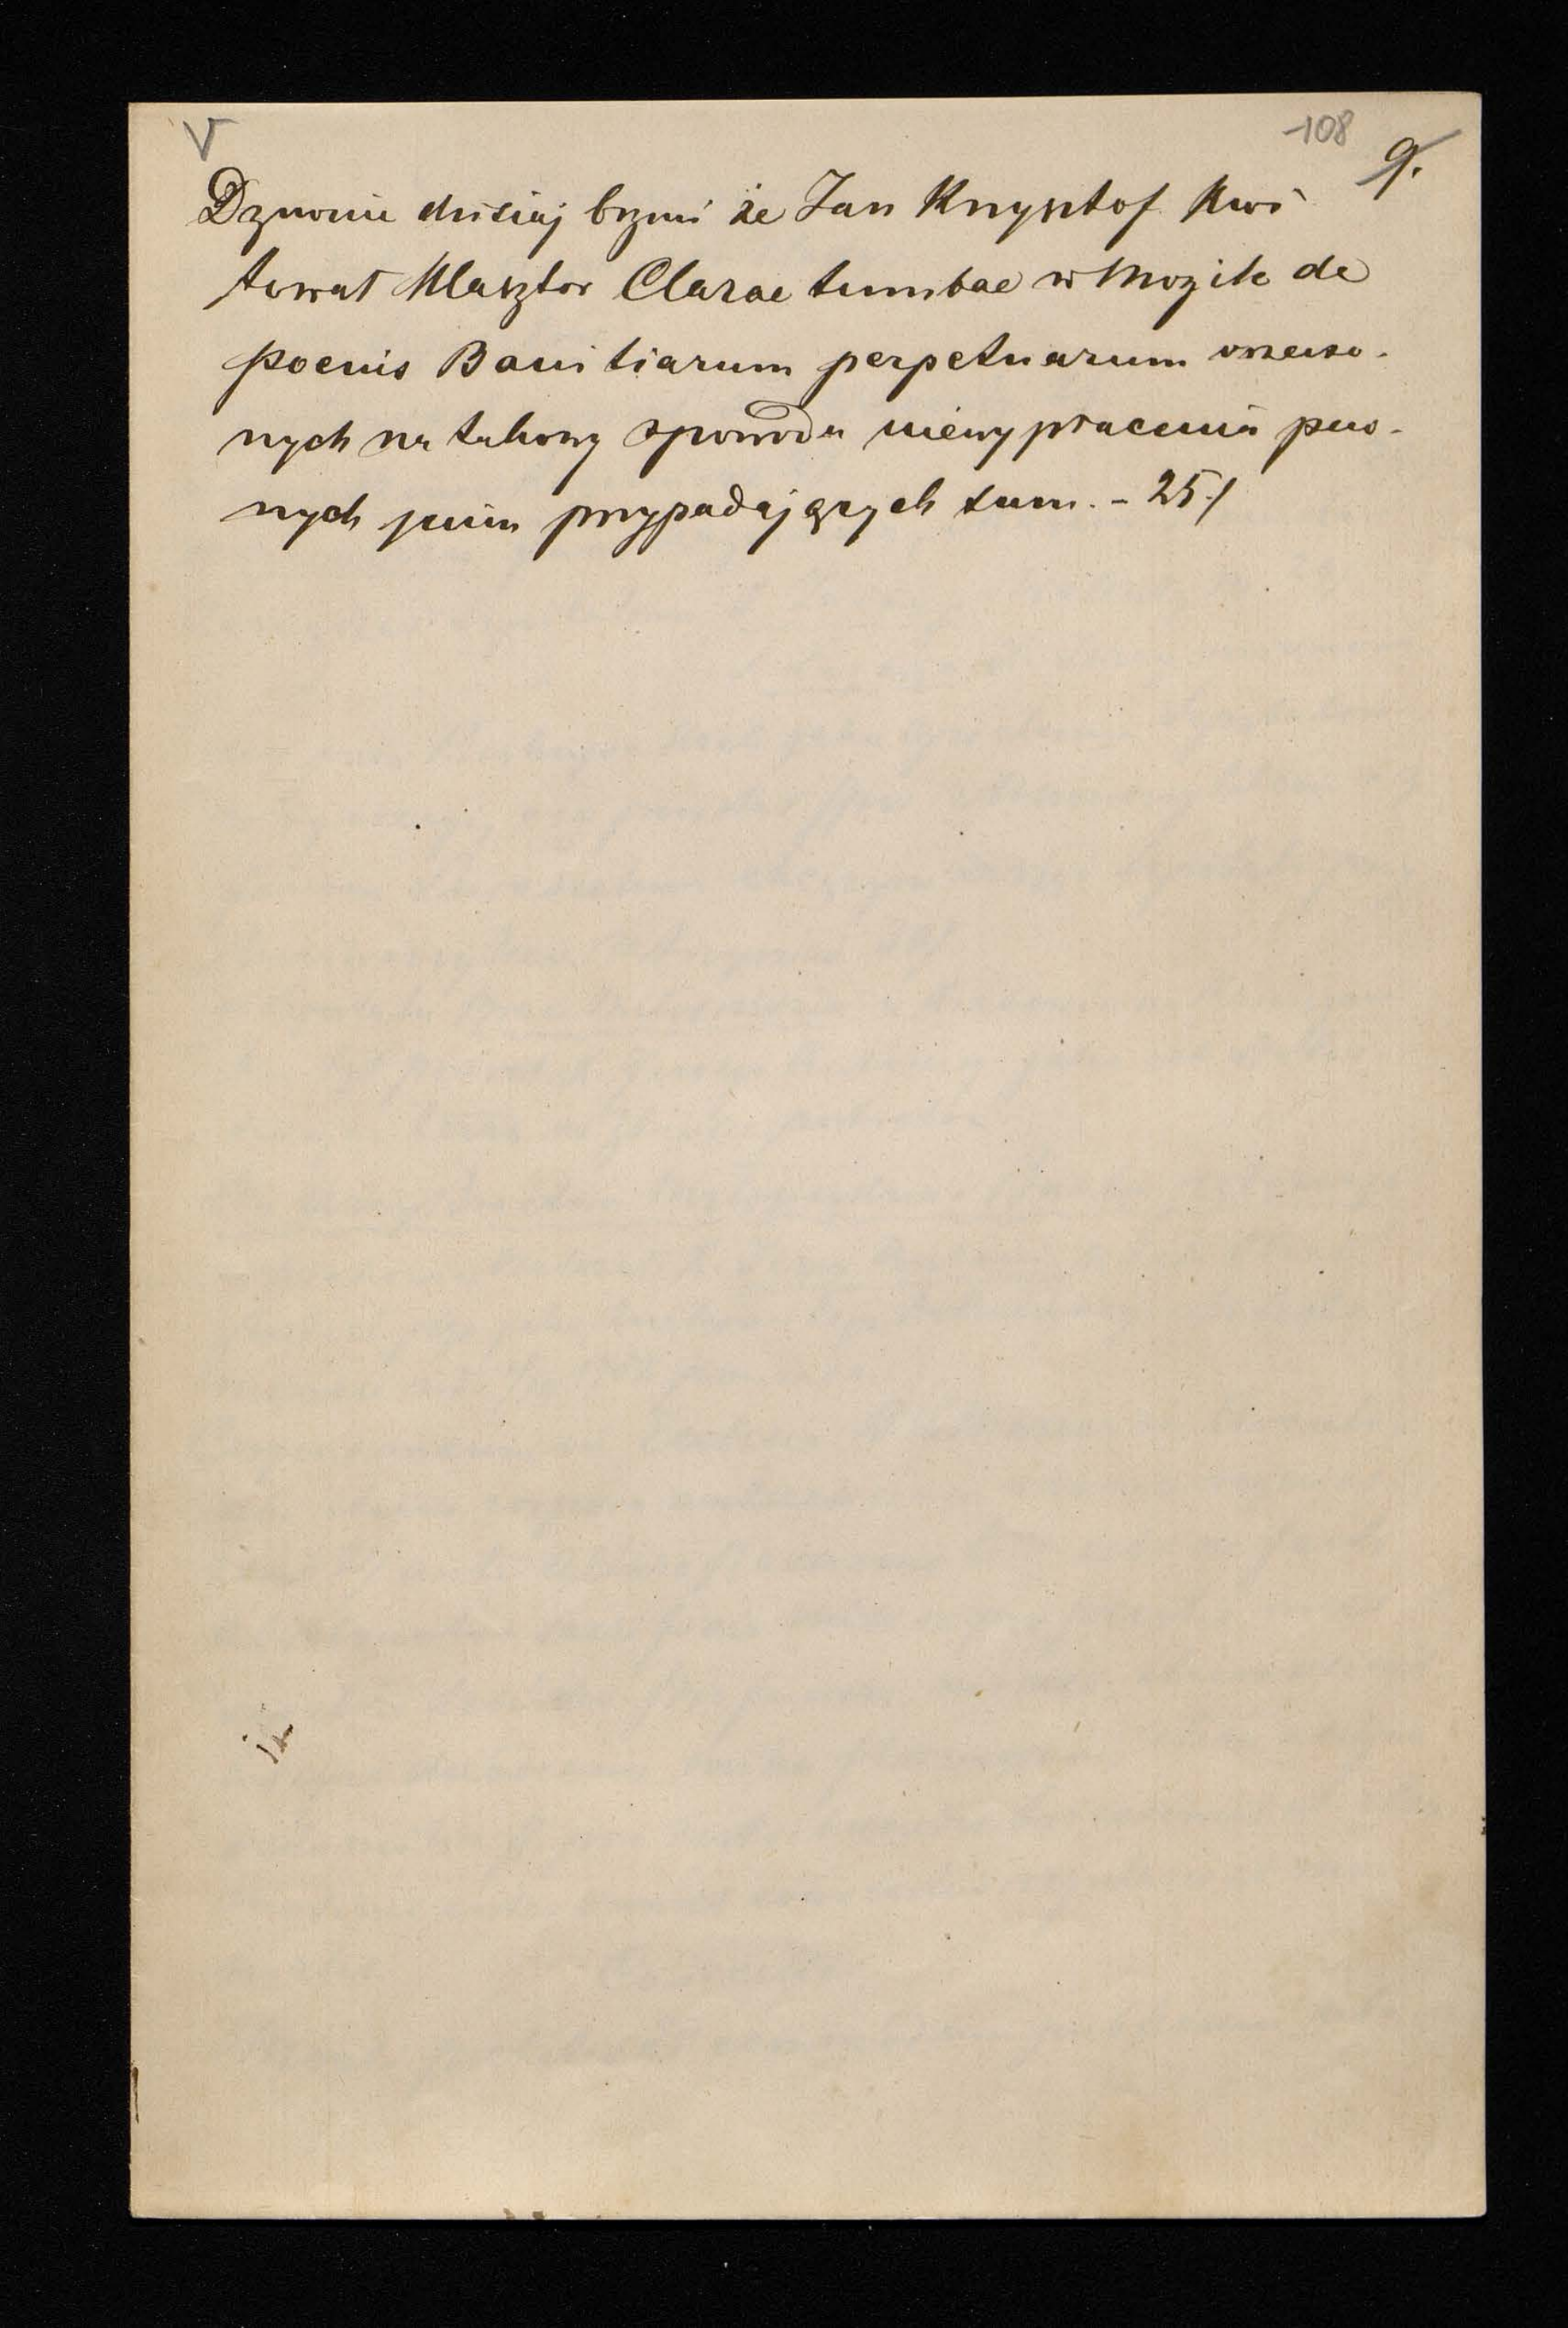 V
108
9.
Dzwonie dzisiaj brzmi że Jan Krzysztof Kwi
towat Klasztor Clarae tumbae w Mogile de
poenis Banitiarum perpetuarum orzeczo-
nych na takowy zpowodu niewypłacenia pew-
nych jmim przypadających sum. - 25/